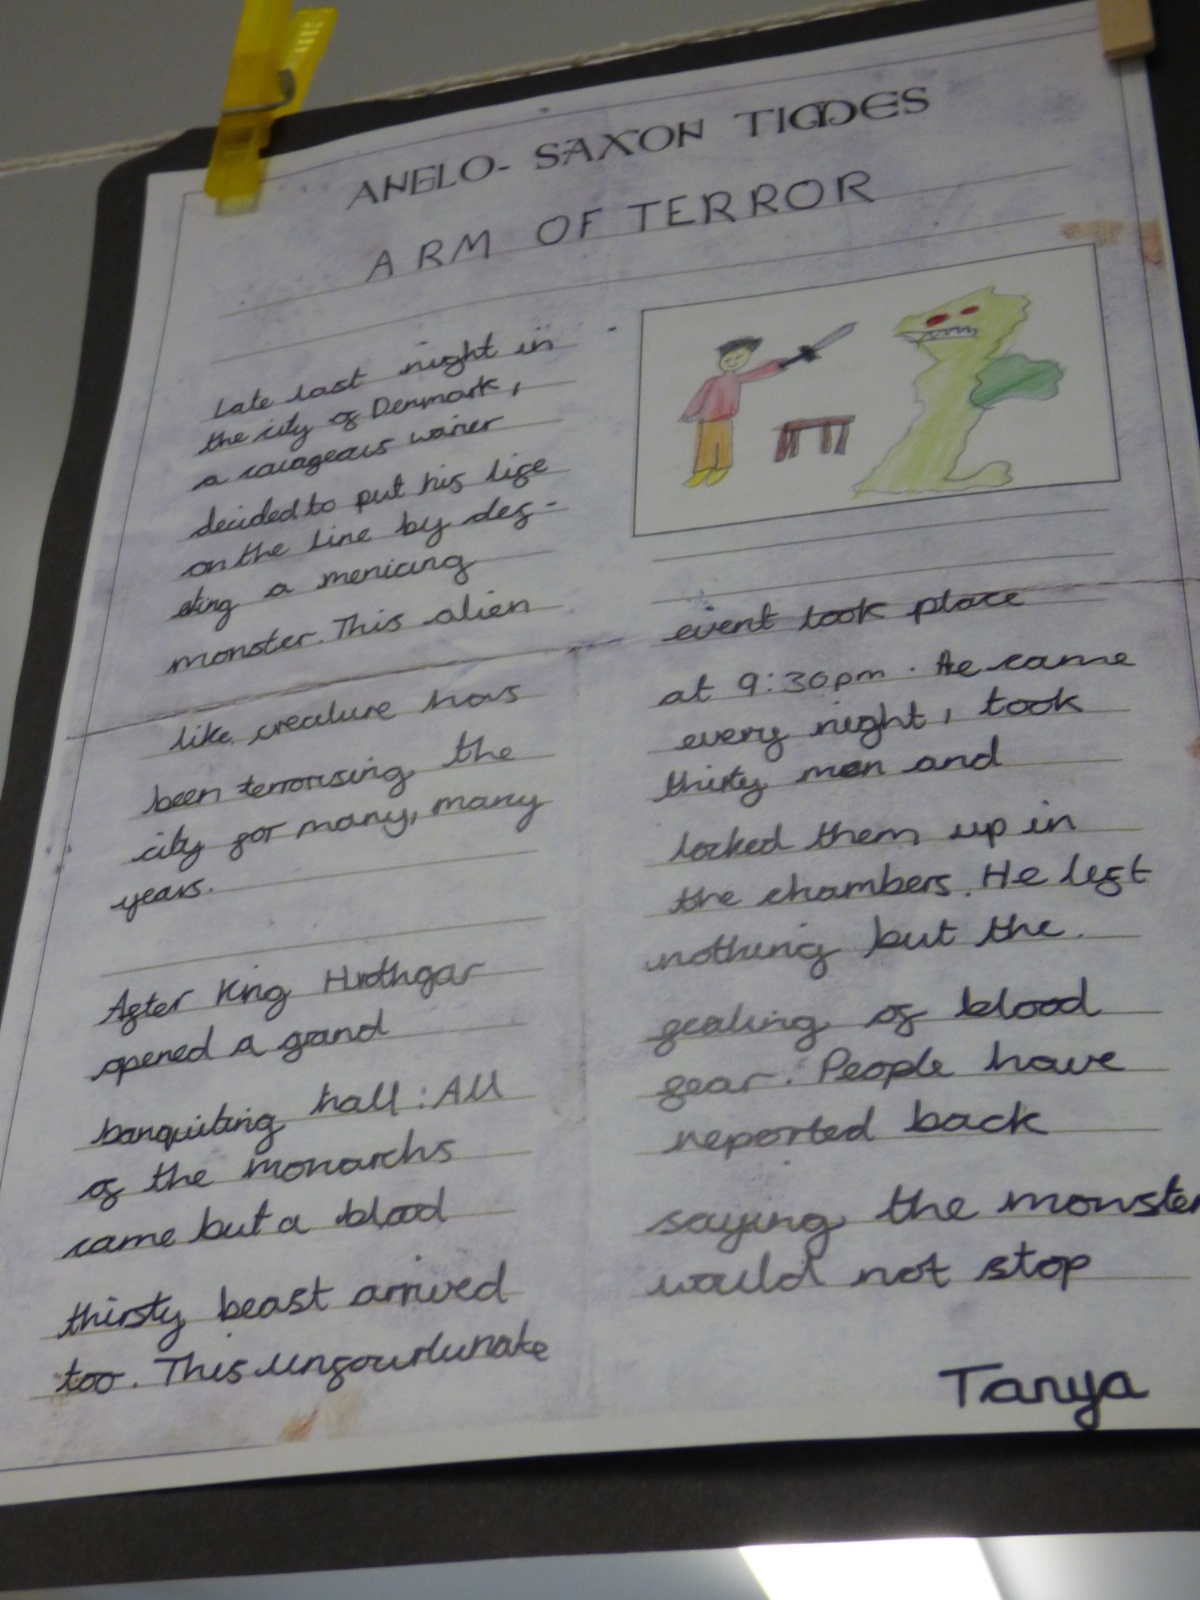 ANGLO-SAXON TIMES
ARM OF TERROR
Late last night in
the city of Denmark,
a courageous warier
decided to put his life
on the line by def-
eting a menicing
monster. This alien
like creature has
been terrorising the
city for many, many
years.
After King Hrothgar
opened a grand
banquiting hall: All
of the monarchs
came but a blood
thirsty beast arrived
too. This unfourtunate
event took place
at 9:30pm. He came
every night, took
thirty men and
locked them up in
the chambers. He left
nothing but the
fealing of blood
fear. People have
reported back
saying the monster
would not stop
Tanya